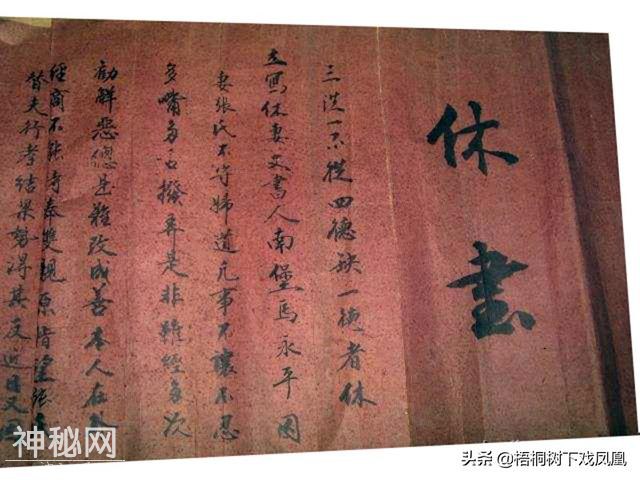 休書
三從一不從四德缺一德者休
立寫休妻文書人南堡馬永平因
妻張氏不守婦道凡事不讓不忍
多嘴多舌撥弄是非雖經多次
勸解惡總是難改成善本人在
經商不能侍奉雙親原指望張
替夫行孝結果勢得其反近日又
神秘网
头条 @梧桐树下戏凤凰